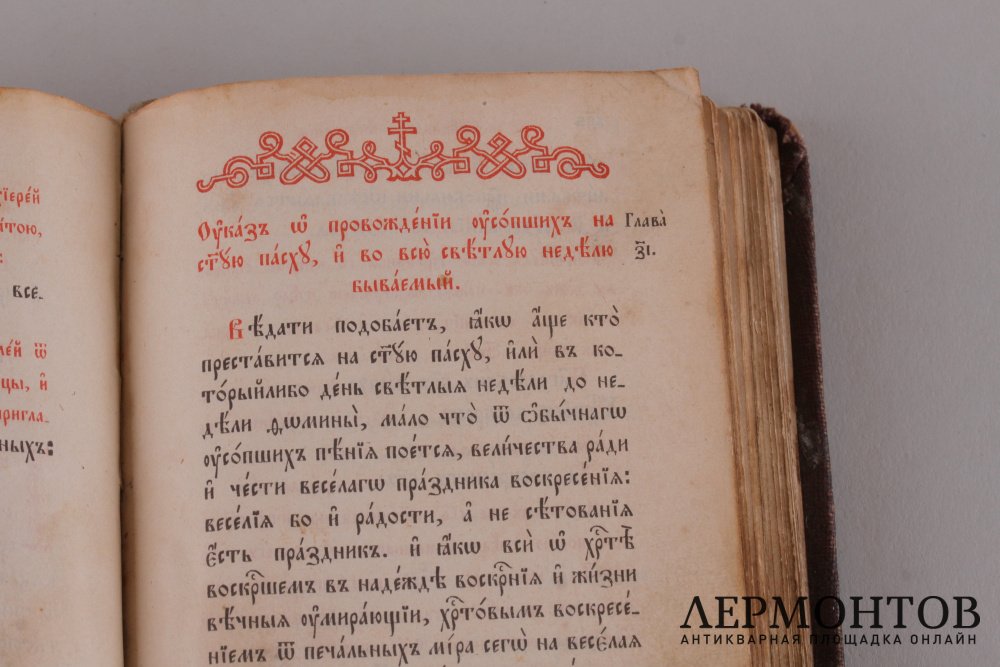 хїере́й
а́тою,
:
все-
ле́й ѿ
цы, и҆
пригла-
ныхъ:
Оу҆ка́зъ ѡ҆ провожде́нїи ᲂу҆со́пшихъ на
ст҃ꙋ́ю па́схꙋ, и҆ во всю̀ свѣ́тлꙋю недѣ́лю
быва́емый.
Глава̀
з҃і.
Вѣ́дати подоба́етъ, ꙗ҆́кѡ а҆́ще кто̀
преста́вится на ст҃ꙋ́ю па́схꙋ, и҆лѝ въ ко-
то́рыйлибо де́нь свѣ́тлыѧ недѣ́ли до не-
дѣ́ли ѳѡмины̀, ма́ло что̀ ѿ ѡ҆бы́чнагѡ
ᲂу҆со́пшихъ пѣ́нїѧ пое́тсѧ, вели́чества ра́ди
и҆ че́сти весе́лагѡ пра́здника воскресе́нїѧ:
весе́лїѧ бо и҆ ра́дости, а҆ не сѣ́тованїѧ
є҆́сть пра́здникъ. и҆ ꙗ҆́кѡ всѝ ѡ҆ хрⷭ҇тѣ̀
воскрⷭ҇шемъ въ наде́ждѣ воскрⷭ҇нїѧ и҆ жи́зни
вѣ́чныѧ ᲂу҆мира́ющїи, хрⷭ҇то́вымъ воскресе́-
нїемъ ѿ печа́льныхъ мі́ра сегѡ̀ на весе́лаѧ
ЛЕРМОНТОВ
АНТИКВАРНАЯ ПЛОЩАДКА ОНЛАЙН